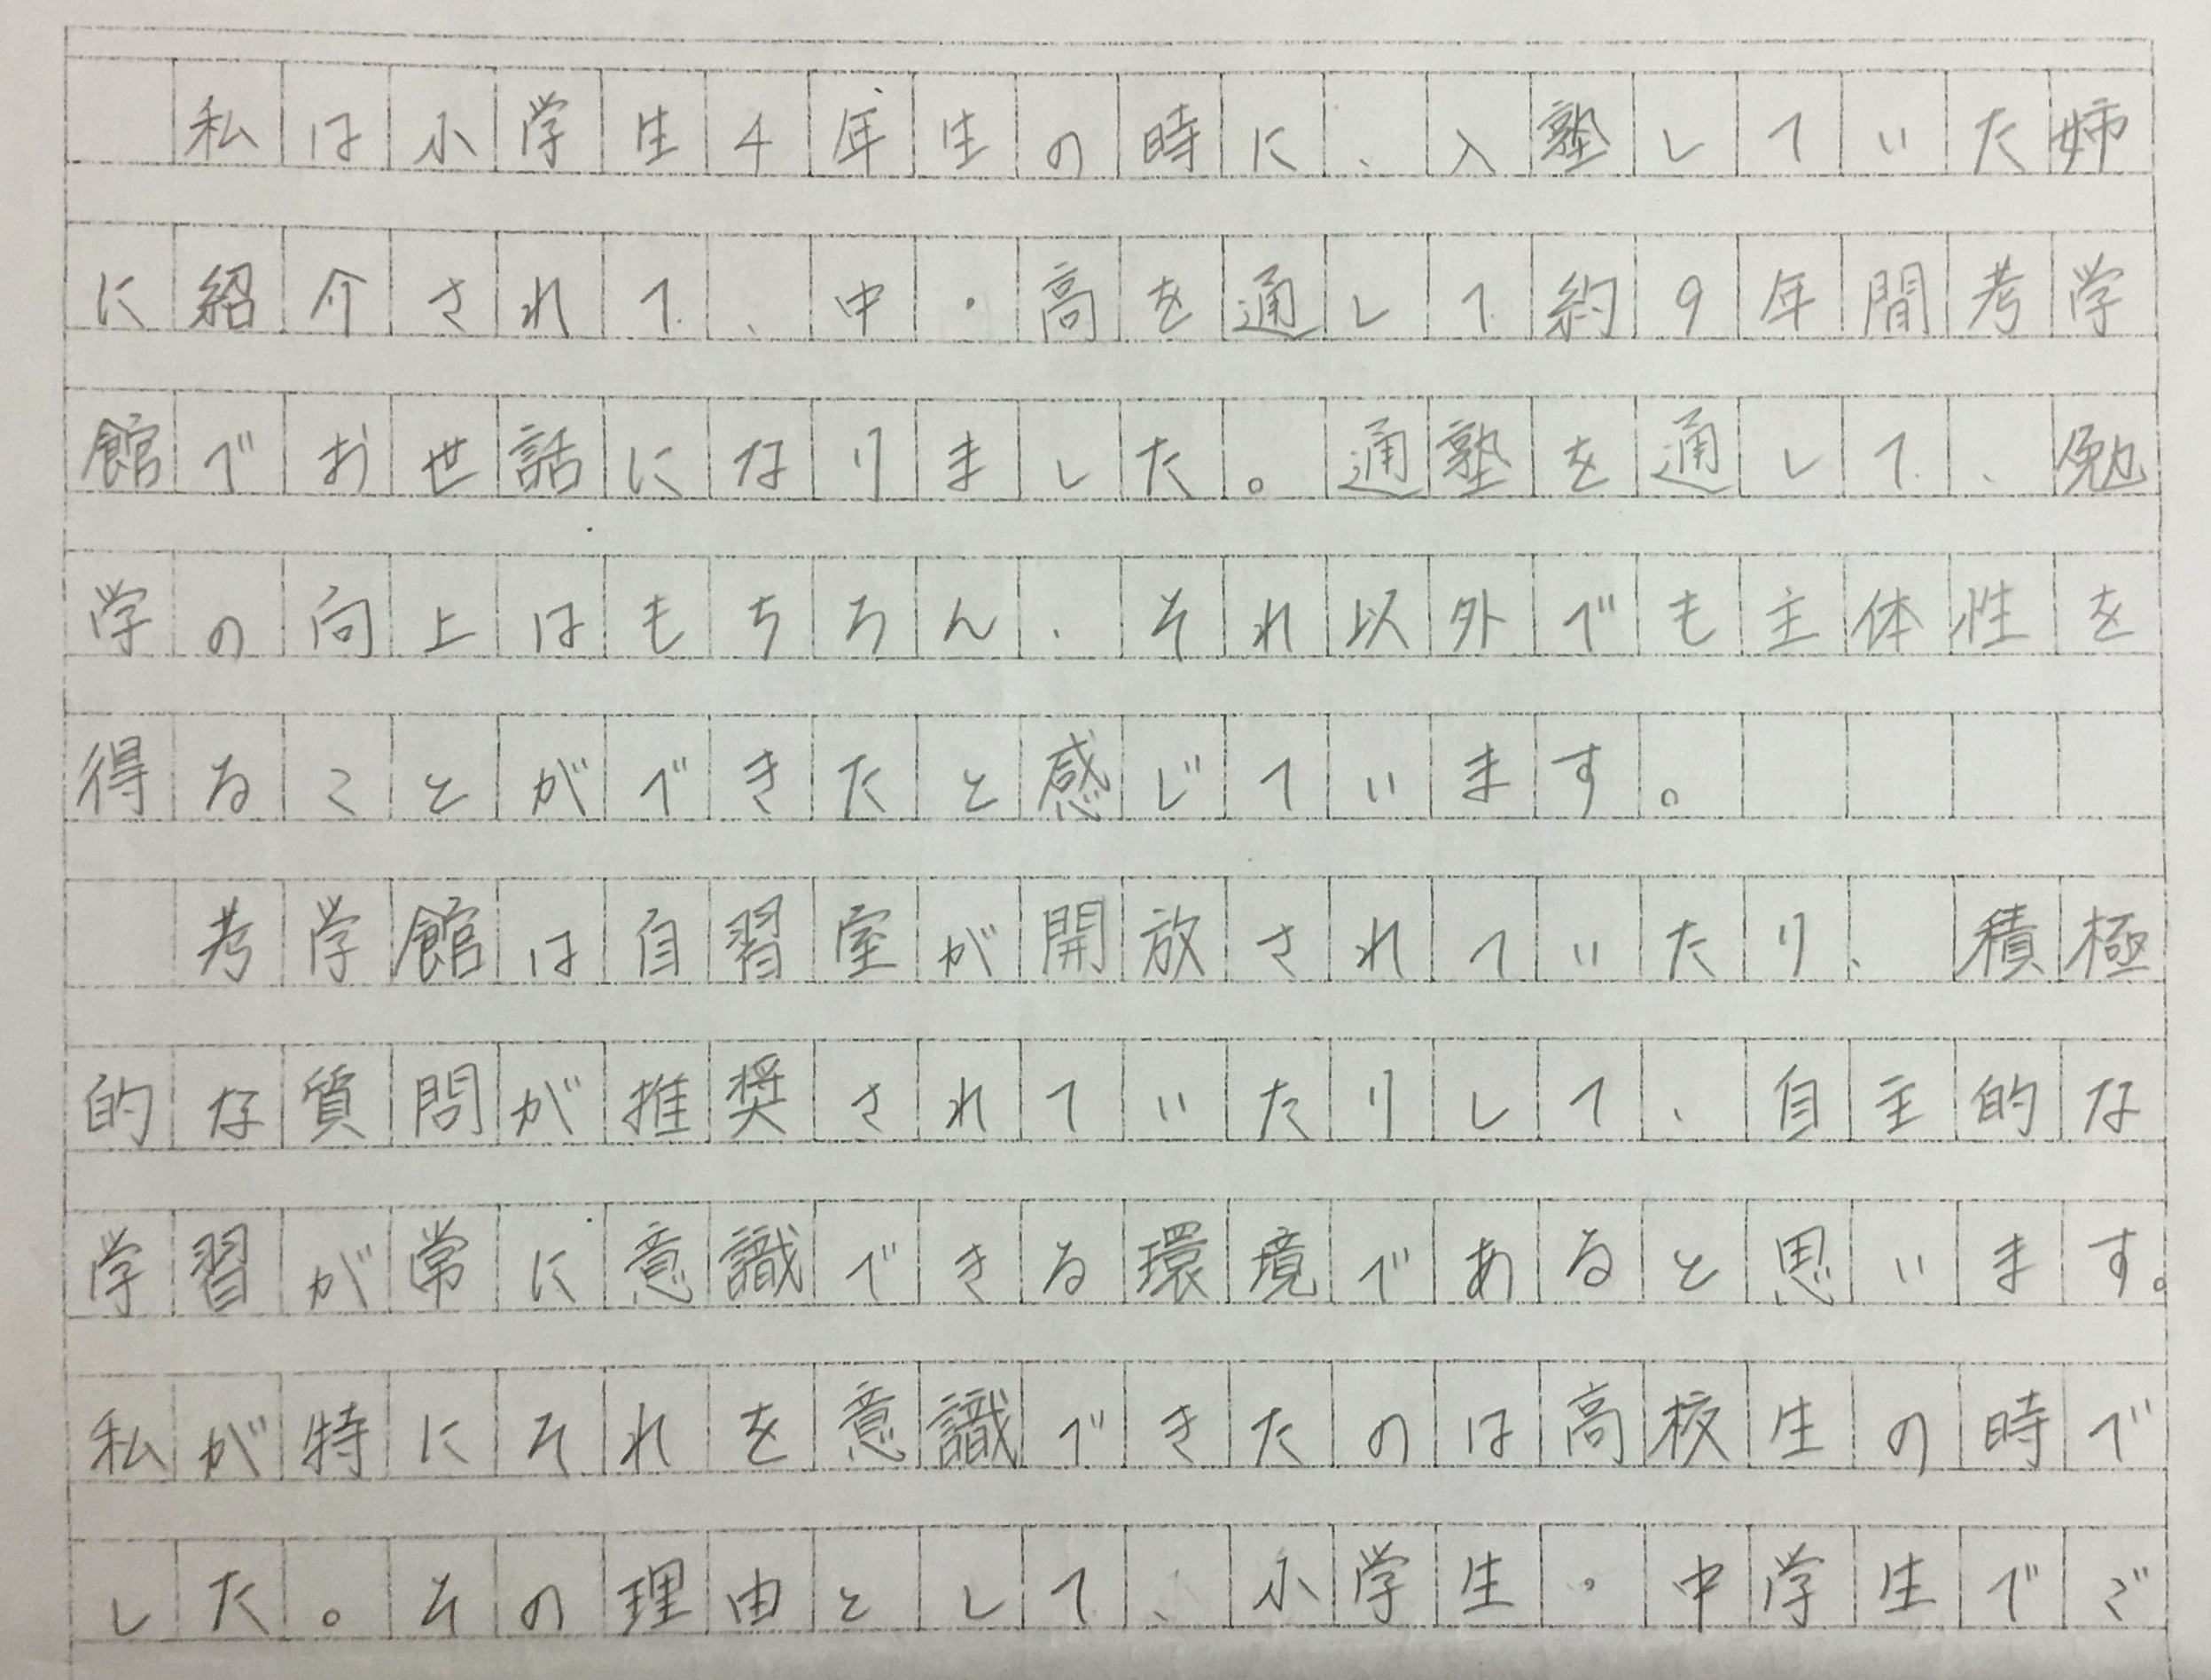 私は小学生4年生の時に、入塾していた姉
に紹介されて、中・高を通して約9年間考学
館でお世話になりました。通塾を通して、勉
学の向上はもちろん、それ以外でも主体性を
得ることができたと感じています。
考学館は自習室が開放されていたり、積極
的な質問が推奨されていたりして、自主的な
学習が常に意識できる環境であると思います。
私が特にそれを意識できたのは高校生の時で
した。その理由として、小学生・中学生でご